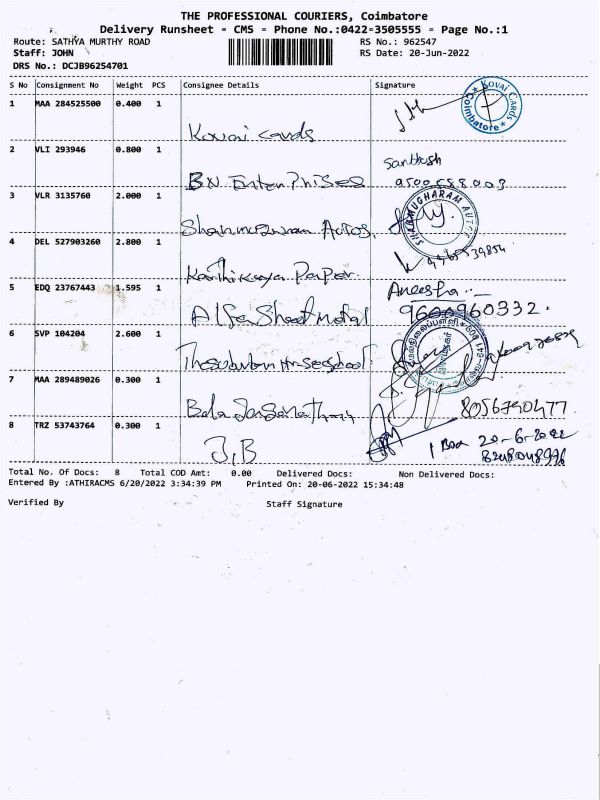 THE PROFESSIONAL COURIERS, Coimbatore
Delivery Runsheet = CMS = Phone No.:0422=3505555 = Page No.:1
Route: SATHYA MURTHY ROAD RS No.: 962547
Staff: JOHN RS Date: 20-Jun-2022
DRS No.: DCJB96254701
S No Consignment No Weight PCS Consignee Details Signature
1 MAA 284525500 0.400 1 Kovai Cards
Kovai Cards Coimbatore
2 VLI 293946 0.800 1 BN Enterprises
Santhosh
3 VLR 3135760 2.000 1
SHANMUGHARAM AUTOS
4 DEL 527903260 2.800 1 Karthikeya Paper
5 EDQ 23767443 1.595 1 Alfa Sheet metal
Aneesha
9600960332.
6 SVP 104204 2.600 1
7 MAA 289489026 0.300 1
8056790477
8 TRZ 53743764 0.300 1 J,B
1 Box 20-6-2022
Total No. Of Docs: 8 Total COD Amt: 0.00 Delivered Docs: Non Delivered Docs:
Entered By :ATHIRACMS 6/20/2022 3:34:39 PM Printed On: 20-06-2022 15:34:48
Verified By Staff Signature